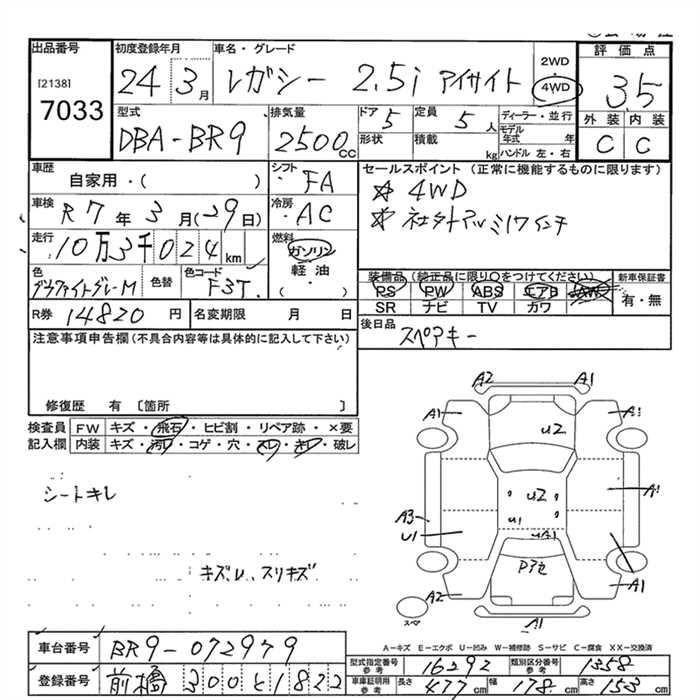 出品番号 初度登録年月 車名・グレード 2WD 4WD 評価点
[2138] 7033 24 3月 レガシー 2.5i アイサイト 3.5
型式 排気量 ドア 5 定員 5人 ディーラー・並行 外装 内装
DBA-BR9 2500cc 形状 積載 kg モデル年式 年 C C
ハンドル 左・右
車歴 自家用・( ) シフト FA セールスポイント(正常に機能するものに限ります)
☆ 4WD
車検 R7年3月(29日) 冷房 AC ☆ 社外アルミ17インチ
走行 10万3千024km 燃料 ガソリン
軽油
・( )
色 グラファイトグレーM 色替 色コード F3T 装備品(純正品に限り○をつけてください) 新車保証書
PS PW ABS エアB AW 有・無
R券 14820円 名変期限 月 日 SR ナビ TV カワ
注意事項申告欄(不具合内容等は具体的に記入して下さい) 後日品 スペアキー
修復歴 有 〔箇所 〕
検査員 FW キズ・飛石・ヒビ割・リペア跡・×要
記入欄 内装 キズ・汚れ・コゲ・穴・スレ・キレ・破レ
A2 A1
A1 A1
U2
シートキレ
U2 A1
A3 U1
U1 UA1
キズ.U、スリキズ
Pアセ
A2 A1
スペア A1
A-キズ E-エクボ U-凹み W-補修跡 S-サビ C-腐食 XX-交換済
車台番号 BR9-072979
型式指定番号 参考 16292 類別区分番号 参考 1358
登録番号 前橋 300 さ 1822
車庫証明用 参考 長さ 477cm 幅 178cm 高さ 153cm